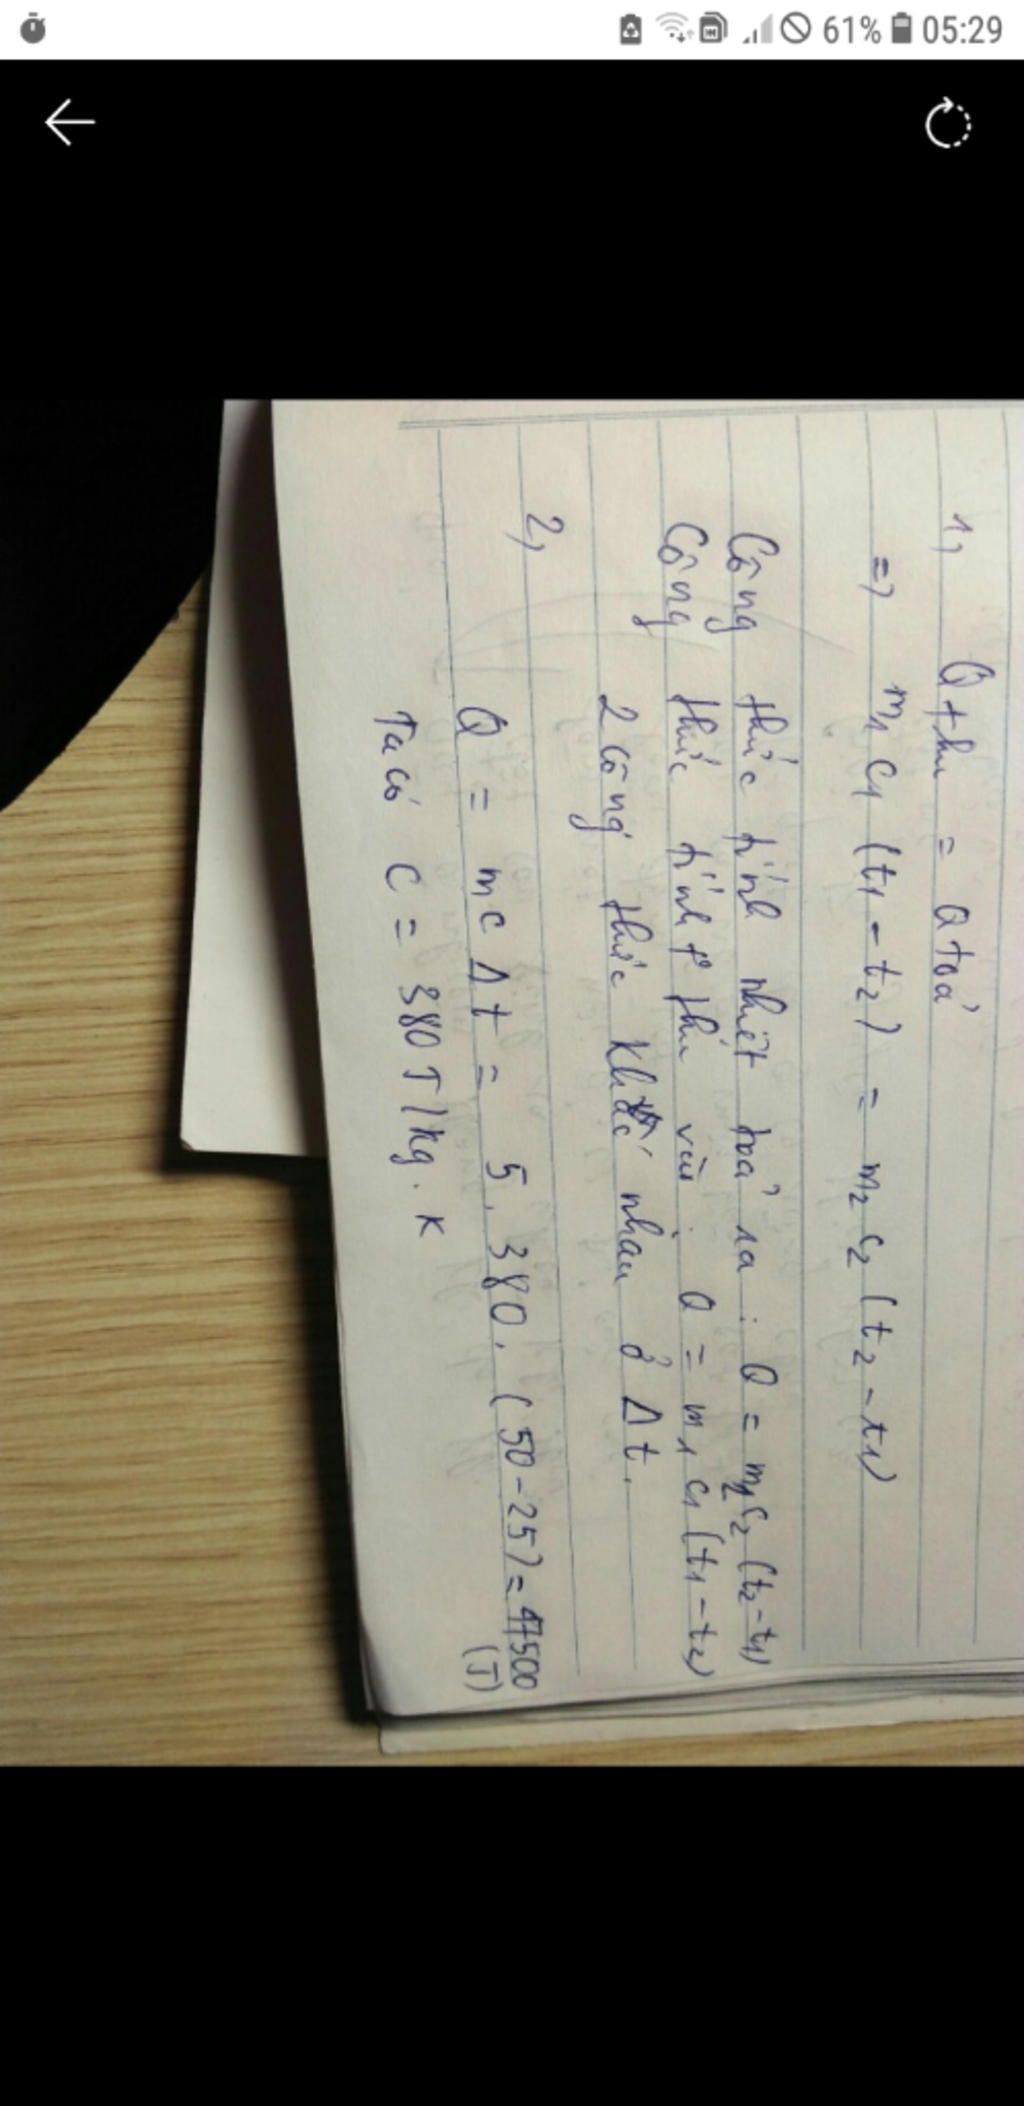 61% 05:29
1,
Q thu = Q toả
=> m₁ c₁ (t₁ - t₂) = m₂ c₂ (t₂ - t₁)
Công thức tính nhiệt toả ra : Q = m₂c₂ (t₂ - t₁)
Công thức tính t° thu vào : Q = m₁ c₁ (t₁ - t₂)
2 công thức khác nhau ở Δt.
2,
Q = mcΔt = 5. 380. (50 - 25) = 47500
(J)
Ta có C = 380 J/kg. K